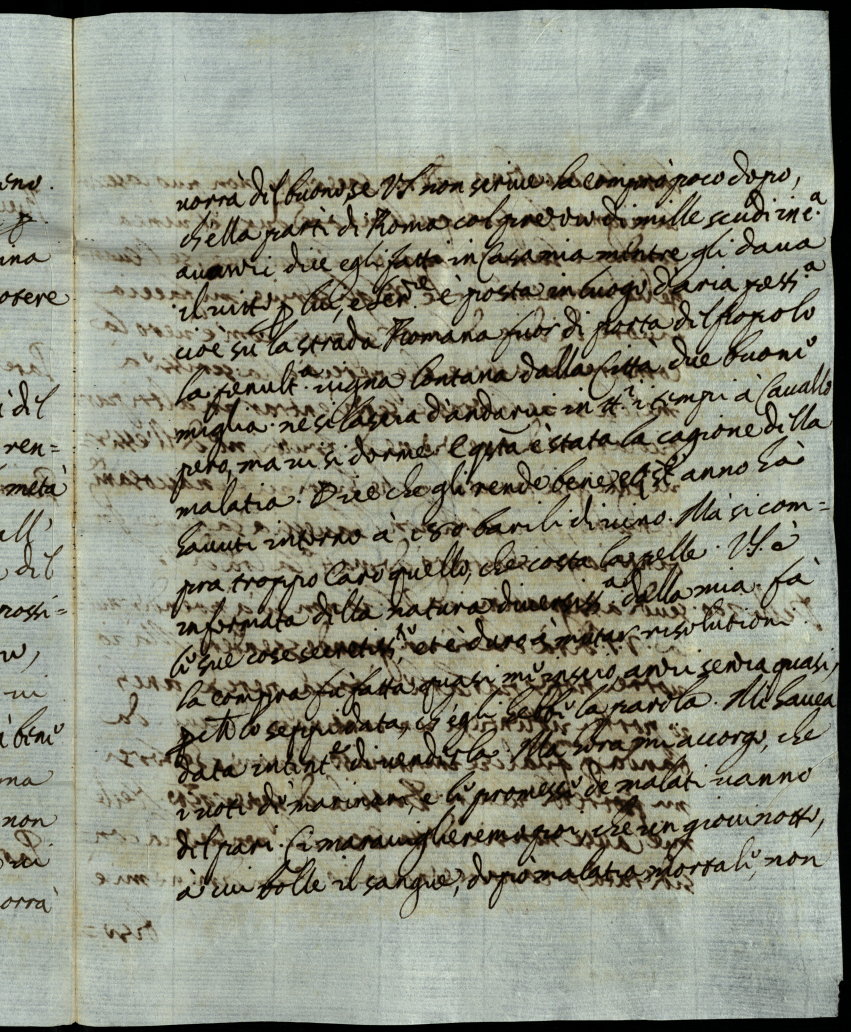 vorrà del buono, se V.S. non scrive. La comprò poco dopo,
che lla partì di Roma col prezzo di mille scudi in c.a
avanzi dice egli fatti in Casa mia mentre gli dava
il vitto p lui, e Ser.re è posta in luogo d'aria pess.a
cioè su la strada Romana fuor di porta del popolo
la penult.a vigna lontana dalla Città due buone
miglia. ne si lascia d'andarvi in tt.i i tempi à Cavallo
però, ma vi si dorme. E qsta è stata la cagione della
malatia. Dice che gli rende bene, e qst' anno hà
havuti intorno à 150 barili di vino. Mà si com=
pra troppo caro quello, che costa la pelle. V.S. è
informata della natura diversiss.a della mia. fà
le sue cose secretiss.e, et è duro à mutar risolutione
la compra fù fatta quasi me inscio, anzi senza quasi,
p.che lo seppi data ch'egli hebbe la parola. Mi havea
data intent.e di venderla. Mà hora mi accorgo, che
i voti de marinari, e le promesse de malati vanno
del pari. Ci maraviglieremo poi, che un giovinotto,
à cui bolle il sangue, dopo malatia mortale, non